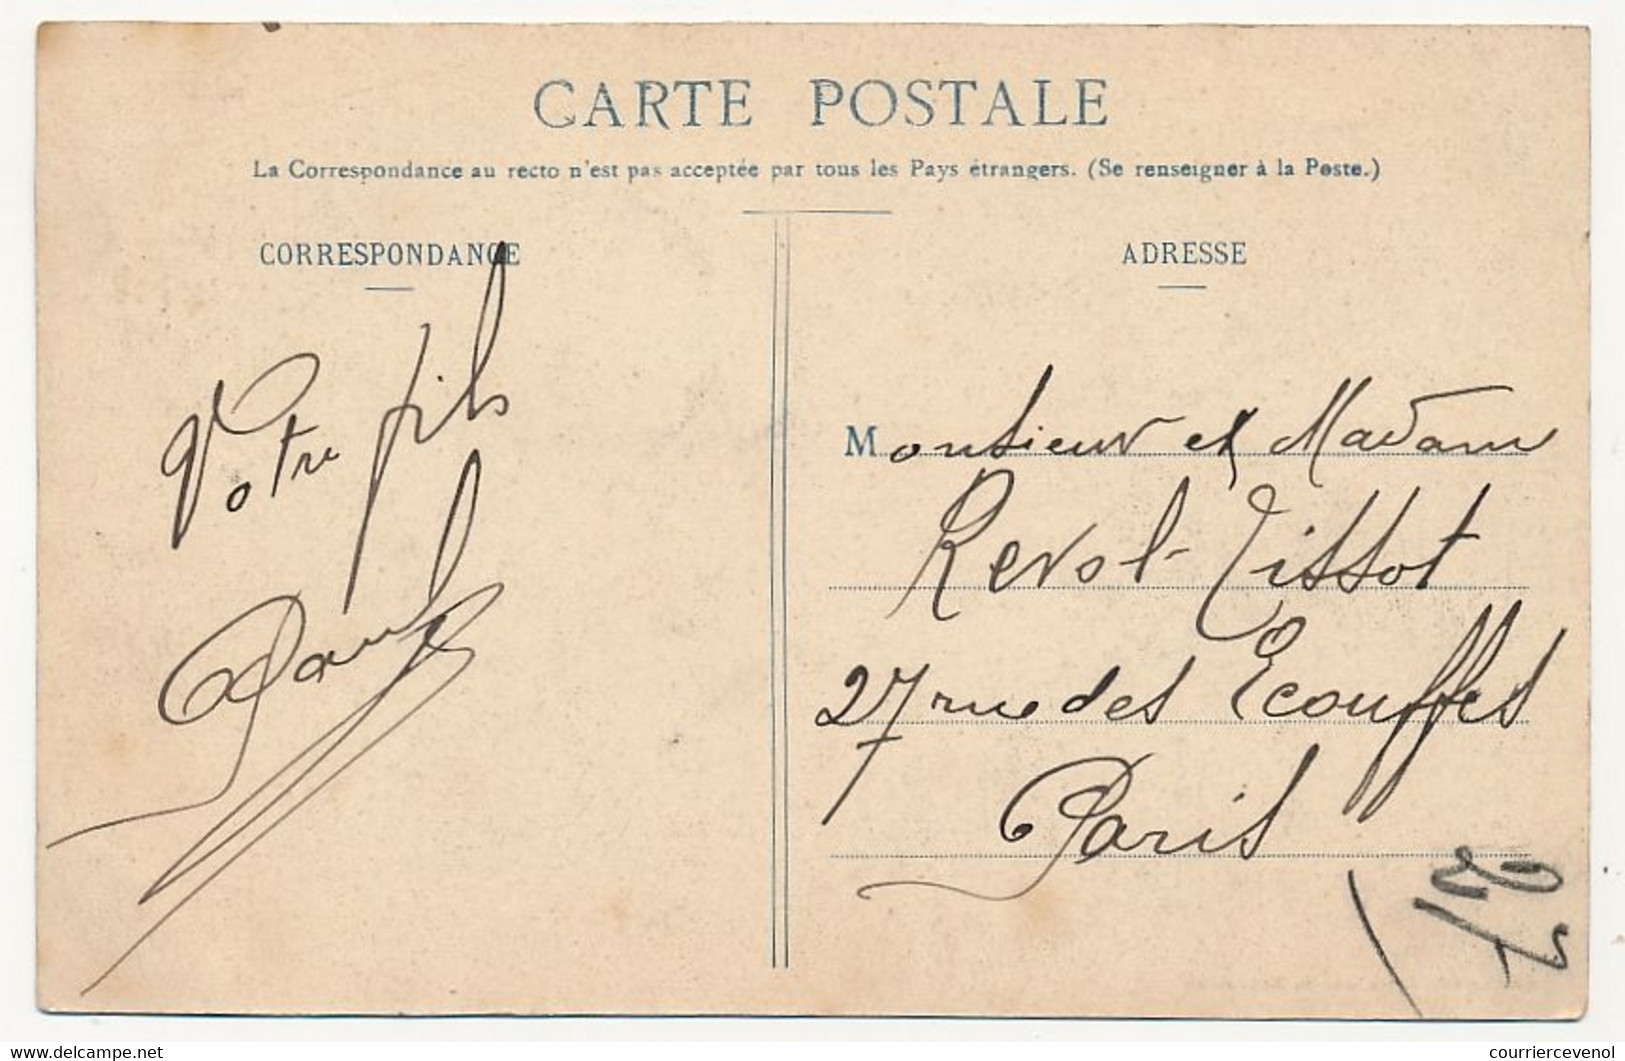 CARTE POSTALE
La Correspondance au recto n'est pas acceptée par tous les Pays étrangers. (Se renseigner à la Poste.)
CORRESPONDANCE
Votre fils
Paul
ADRESSE
Monsieur et Madame
Revol-Tissot
27 rue des Ecouffes
Paris
delcampe.net
courriercevenol